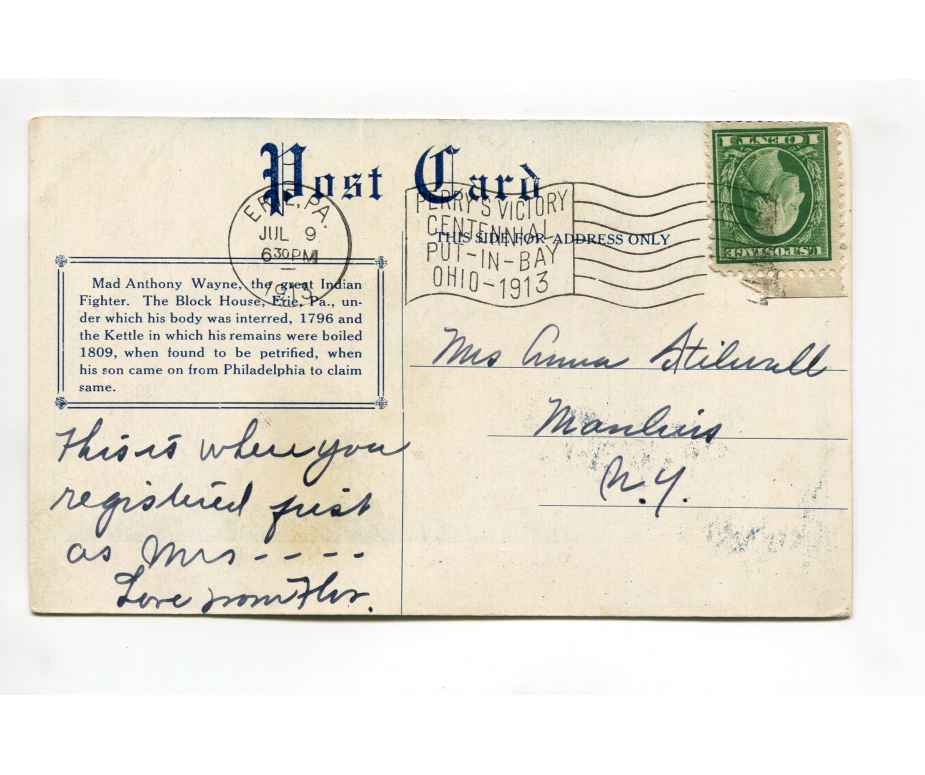 Post Card
THIS SIDE FOR ADDRESS ONLY
ERIE, PA.
JUL 9
630 PM
1913
PERRY'S VICTORY
CENTENNIAL
PUT-IN-BAY
OHIO-1913
U.S. POSTAGE
1 CENT 1
Mad Anthony Wayne, the great Indian
Fighter. The Block House, Erie, Pa., un-
der which his body was interred, 1796 and
the Kettle in which his remains were boiled
1809, when found to be petrified, when
his son came on from Philadelphia to claim
same.
This is where you
registered first
as Mrs - - - -
Love from Flor.
Mrs Anna Stilwell
Manlius
N.Y.